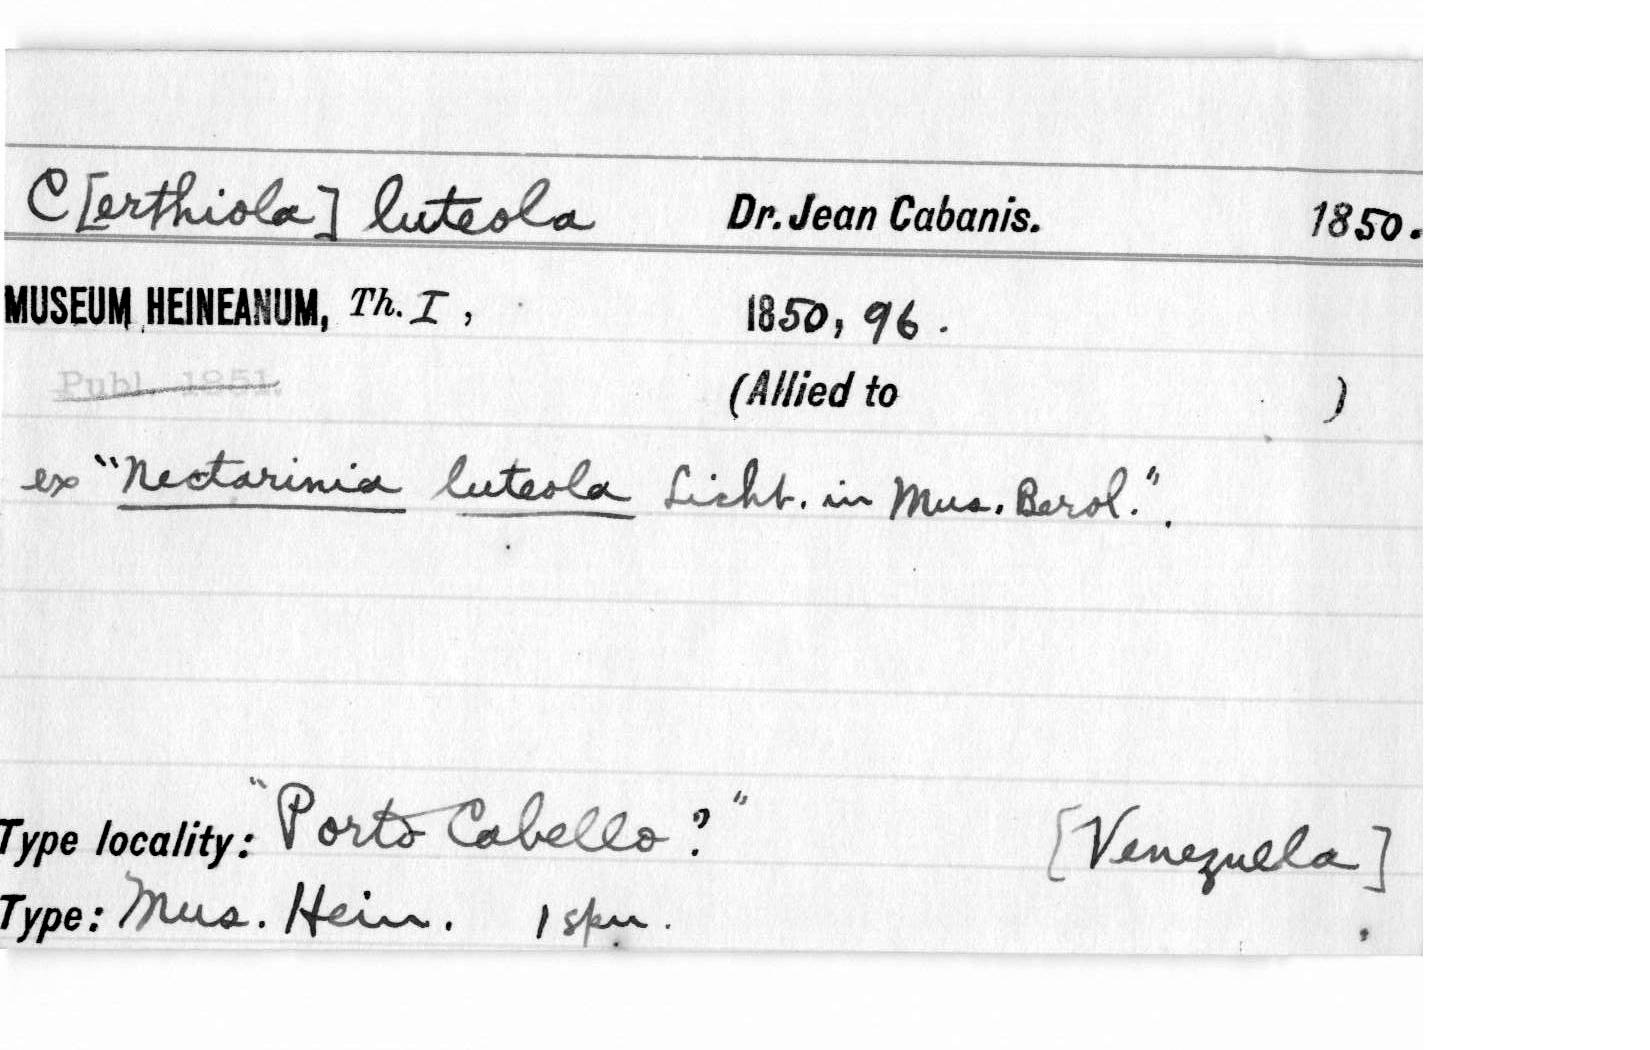 C[erthiola] luteola Dr. Jean Cabanis. 1850.
MUSEUM HEINEANUM, Th. I, 1850, 96.
Publ. 1851. (Allied to )
ex "Nectarinia luteola Licht. in Mus. Berol.".
Type locality: "Porto Cabello?" [Venezuela]
Type: Mus. Hein. 1 spn.